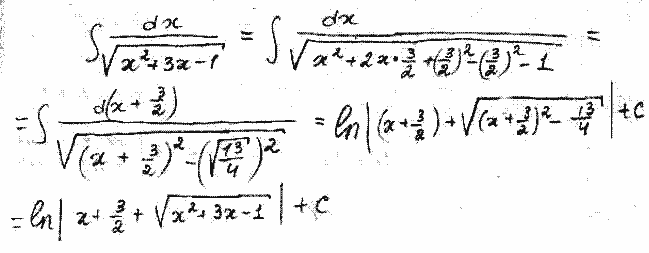 ∫ dx/√(x²+3x-1) = ∫ dx/√(x²+2x·3/2+(3/2)²-(3/2)²-1) =
= ∫ d(x+3/2)/√((x+3/2)²-(√(13/4))²) = ln|(x+3/2)+√((x+3/2)²-13/4)|+C
= ln|x+3/2+√(x²+3x-1)|+C